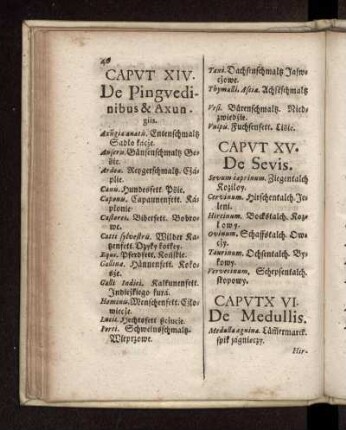 40
CAPVT XIV.
De Pingvedi-
nibus & Axun-
giis.
Axũgia anatũ. Entenschmaltz
Sadło kacje.
Anserũ. Gänsenschmaltz Gę-
sie.
Ardea. Reygerschmaltz. Czá-
plie.
Canũ. Hundesfett. Pśie.
Caponũ. Capaunenfett. Ká-
płonie.
Castorei. Biberfett. Bobro-
we.
Catti sylvestris. Wilder Ka-
tzenfett. Dzyky kotkey.
Equi. Pferdsfett. Końskie.
Galinæ. Hännenfett. Koko-
sze.
Galli Indici. Kalkunenfett
Indiyskiego kurá.
Hominũ. Menschenfett. Czło-
wiecze.
Lucii. Hechtsfett
Porci. Schweinsschmaltz.
Wieprzowe.
Taxi. Dachsenschmaltz Jáźw-
czowe.
Thymalli. Aschschmaltz
Vrsi. Bärenschmaltz. Nied-
zwiedźie.
Vulpũ. Fuchsenfett. Lisie.
CAPUT XV.
De Sevis.
Sevum caprinum. Ziegentalch
Koziloy.
Cervinum. Hirschentalch. Je-
leni.
Hircinum. Bockstalch. Koz-
łowy.
Ovinum. Schaffstalch. Ow-
czy.
Taurinum. Ochsentalch. By-
kowy.
Ververinum, Schepsentalch.
skopowy.
CAPVTX VI.
De Medullis.
Medulla agnina. Lämmermarck.
spik jágnieczy.
Hir-